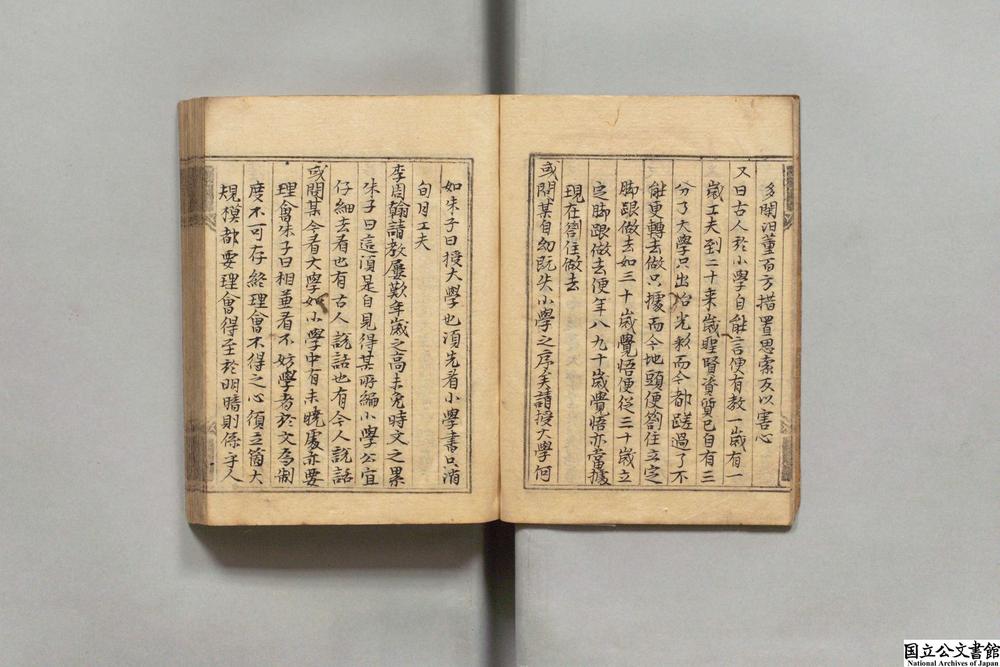 多聞汩董百方措置思索反以害心
又曰古人於小學自能言便有教一歲有一
歲工夫到二十來歲聖賢資質已自有三
分了大學只出治光彩而今都蹉過了不
能更轉去做只據而今地頭便劄住立定
脚跟做去如三十歲覺悟便從三十歲立
定脚跟做去便年八九十歲覺悟亦當據
現在劄住做去
或問某自幼旣失小學之序矣請授大學何
如朱子曰授大學也須先看小學書只消
旬月工夫
李周翰請教屢歎年歲之高未免時文之累
朱子曰這須是自見得某所編小學公宜
仔細去看也有古人說話也有今人說話
或問某今看大學如小學中有未曉處亦要
理會朱子曰相並看不妨學者於文爲制
度不可存終理會不得之心須立箇大
規模都要理會得至於明暗則係乎人
国立公文書館
National Archives of Japan